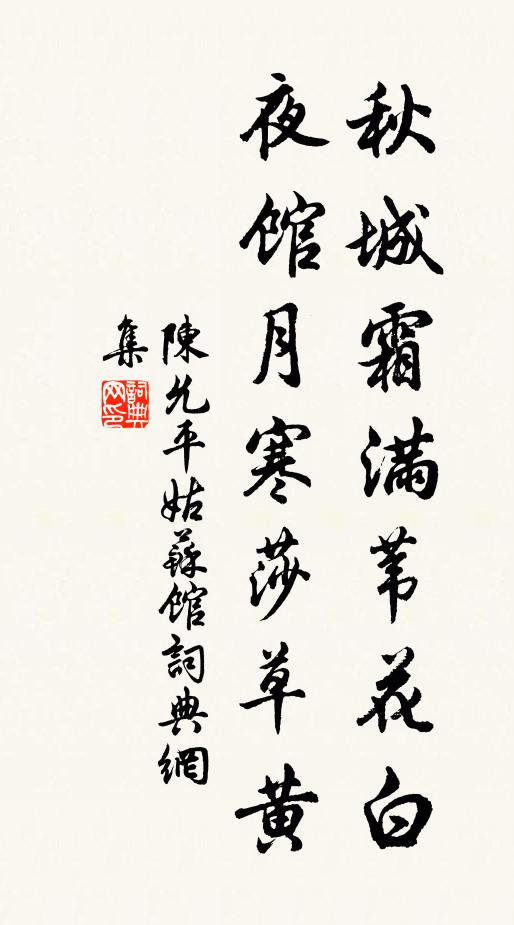 秋城霜滿苇花白
夜館月寒莎草黃
陳允平姑蘇館詞典網
集
詞典网印